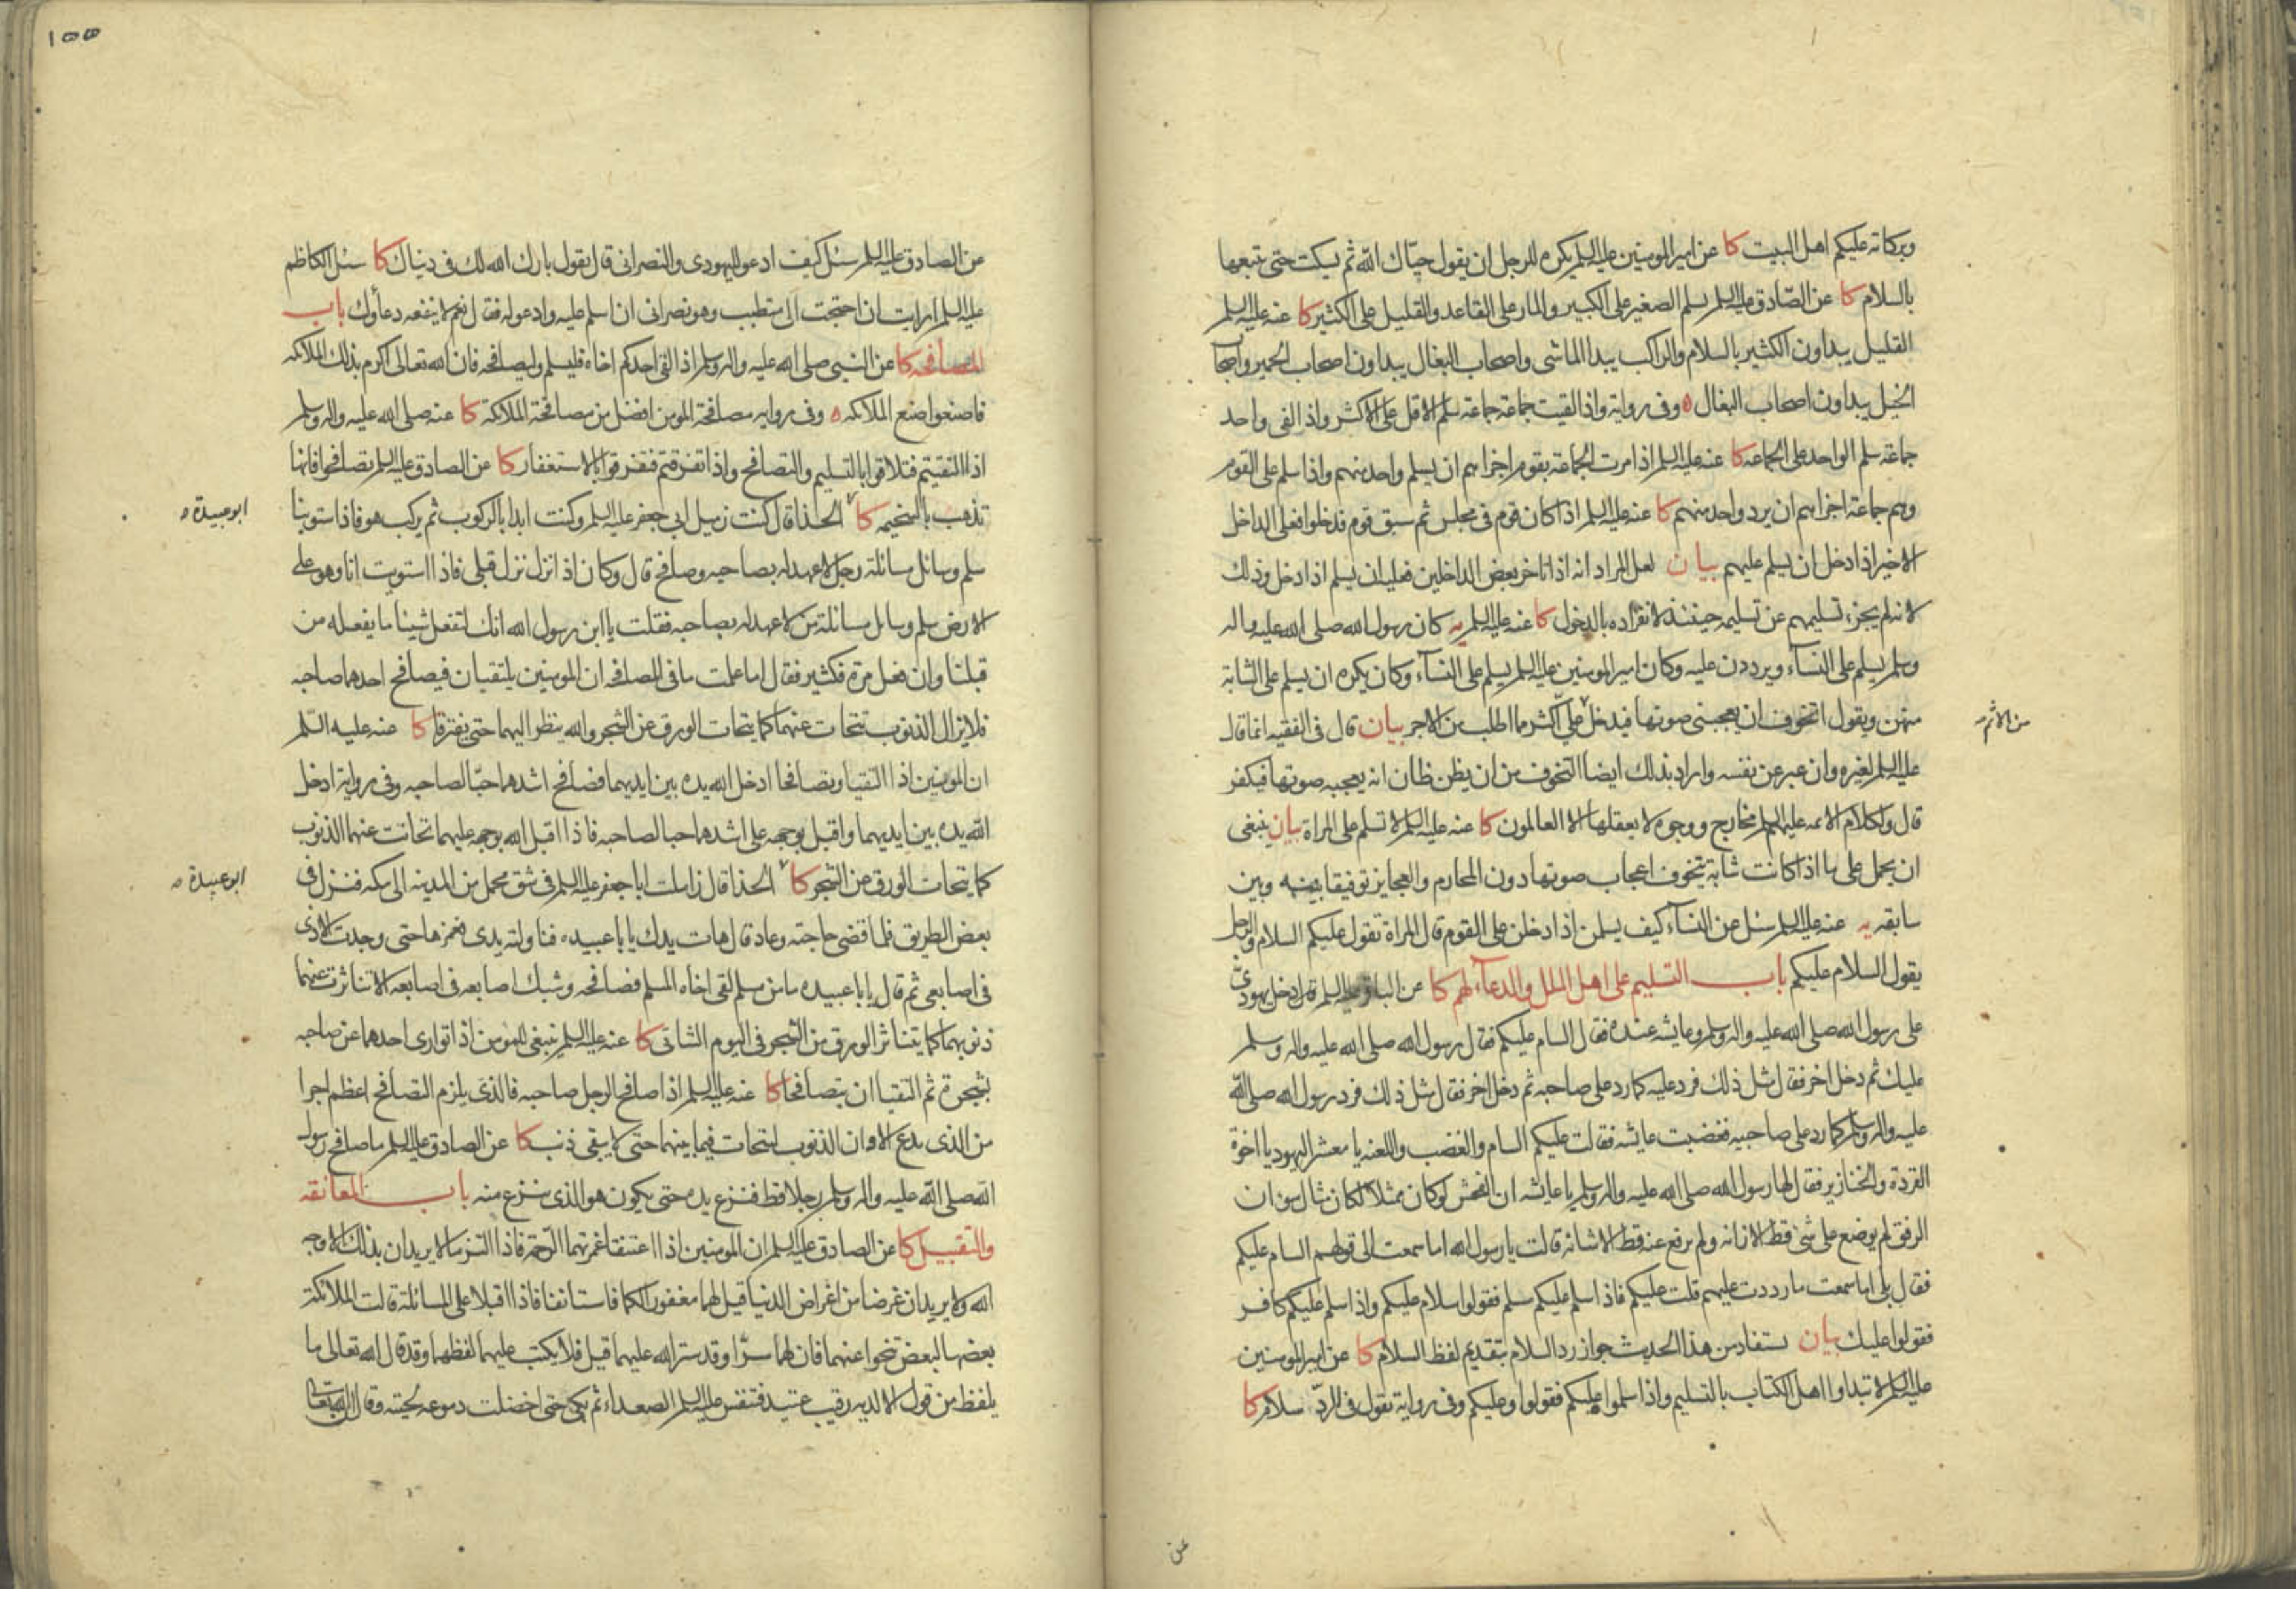 وبركاته عليكم اهل البيت كا عن امير المومنين عليه السلم يكره للرجل ان يقول حيّاك الله ثم يسكت حتى يتبعها
بالسلام كا عن الصّادق عليه السلم يسلم الصغير على الكبير والمار على القاعد والقليل على الكثير كا عنه عليه السلم
القليل يبداون الكثير بالسلام والراكب يبدا الماشى واصحاب البغال يبداون اصحاب الحمير واصحاب
الخيل يبداون اصحاب البغال ه وفى رواية واذا لقيت جماعة جماعة سلم الاقل على الاكثر واذا لقى واحد
جماعة سلم الواحد على الجماعه كا عنه عليه السلم اذا مرت الجماعة بقوم اجزاهم ان يسلم واحد منهم واذا سلم على القوم
وهم جماعة اجزاهم ان يرد واحد منهم كا عنه عليه السلم اذا كان قوم فى مجلس ثم سبق قوم فدخلوا فعلى الداخل
الاخير اذا دخل ان يسلم عليهم بيان لعل المراد انه اذا تاخر بعض الداخلين فعليه ان يسلم اذا دخل وذلك
لانه لم يجزء تسليمهم عن تسليمه حينئذ لانفراده بالدخول كا عنه عليه السلم يه كان رسول الله صلى الله عليه واله
وسلم يسلم على النسآء ويرددن عليه وكان امير المومنين عليه السلم يسلم على النسآء وكان يكره ان يسلم على الشابة
منهن ويقول اتخوف ان يعجبنى صوتها فيدخل علىّ اكثر مما اطلب من الاجر بيان قال فى الفقيه انما قال
من الاثم
عليه السلم لغيره وان عبر عن نفسه واراد بذلك ايضا التخوف من ان يظن ظان انه يعجبه صوتها فيكفر
قال ولكلام الائمه عليهم السلم مخارج ووجوه لا يعقلها الا العالمون كا عنه عليه السلم لا تسلم على المراة بيان ينبغى
ان يحمل على ما اذا كانت شابة يتخوف اعجاب صوتها دون المحارم والعجايز توفيقا بينه وبين
سابقه يه عنه عليه السلم سئل عن النسآء كيف يسلمن اذا دخلن على القوم قال المراة تقول عليكم السلام والرجل
يقول السلام عليكم باب التسليم على اهل الملل والدعآء لهم كا عن الباقر عليه السلم قال دخل يهودىّ
على رسول الله صلى الله عليه واله وسلم وعايشه عنده فقال السام عليكم فقال رسول الله صلى الله عليه واله وسلم
عليك ثم دخل اخر فقال مثل ذلك فرد عليه كما رد على صاحبه ثم دخل اخر فقال مثل ذلك فرد رسول الله صلى الله
عليه واله وسلم كما رد على صاحبيه فغضبت عائشه فقالت عليكم السام والغضب واللعنه يا معشر اليهود يا اخوة
القردة والخنازير فقال لها رسول الله صلى الله عليه واله وسلم يا عايشه ان الفحش لو كان ممثلا لكان مثال سوء ان
الرفق لم يوضع على شئ قط الا زانه ولم يرفع عنه قط الا شانه قالت يا رسول الله اما سمعت الى قولهم السام عليكم
فقال بلى اما سمعت ما رددت عليهم قلت عليكم فاذا سلم عليكم مسلم فقولوا سلام عليكم واذا سلم عليكم كافر
فقولوا عليك بيان يستفاد من هذا الحديث جواز رد السلام بتقديم لفظ السلام كا عن امير المومنين
عليه السلم لا تبداوا اهل الكتاب بالتسليم واذا سلموا عليكم فقولوا وعليكم وفى رواية تقول فى الردّ سلام كا
عن
١٥٥
عن الصادق عليه السلم سئل كيف ادعو لليهودى والنصرانى قال تقول بارك الله لك فى دنياك كا سئل الكاظم
عليه السلم ارايت ان احتجت الى متطبب وهو نصرانى ان اسلم عليه وادعو له فقال نعم لا ينفعه دعاؤك باب
المصافحه كا عن النبى صلى الله عليه واله وسلم اذا لقى احدكم اخاه فليسلم وليصافحه فان الله تعالى اكرم بذلك الملائكه
فاصنعوا صنع الملائكه ه وفى روايه مصافحة المومن افضل من مصافحة الملائكة كا عنه صلى الله عليه واله وسلم
اذا التقيتم فتلاقوا بالتسليم والتصافح واذا تفرقتم فتفرقوا بالاستغفار كا عن الصادق عليه السلم تصافحوا فانها
تذهب بالسخيمه كا الحذا قال كنت زميل ابى جعفر عليه السلم وكنت ابدا بالركوب ثم يركب هو فاذا استوينا
ابو عبيدة ه
سلم وسائل مسائلة رجل لا عهد له بصاحبه وصافح قال وكان اذا نزل نزل قبلى فاذا استويت انا وهو على
الارض سلم وسائل مسائلة من لا عهد له بصاحبه فقلت يا ابن رسول الله انك لتفعل شيئا ما يفعله من
قبلنا وان فعل مرة فكثير فقال اما علمت ما فى المصافحه ان المومنين يلتقيان فيصافح احدهما صاحبه
فلا يزال الذنوب تتحات عنهما كما يتحات الورق عن الشجر والله ينظر اليهما حتى يفترقا كا عنه عليه السّلم
ان المومنين اذا التقيا وتصافحا ادخل الله يده بين ايديهما فصافح اشدهما حبّا لصاحبه وفى رواية ادخل
الله يده بين ايديهما واقبل بوجهه على اشدهما حبا لصاحبه فاذا اقبل الله بوجهه عليهما تحاتت عنهما الذنوب
كما يتحات الورق من الشجر كا الحذا قال زاملت ابا جعفر عليه السلم فى شق محمل من المدينه الى مكه فنزل فى
ابو عبيدة ه
بعض الطريق فلما قضى حاجته وعاد قال هات يدك يا با عبيده فناولته يدى فغمزها حتى وجدت الاذى
فى اصابعى ثم قال يا با عبيده ما من مسلم لقى اخاه المسلم فصافحه وشبك اصابعه فى اصابعه الا تناثرت عنهما
ذنوبهما كما يتناثر الورق من الشجر فى اليوم الشاتى كا عنه عليه السلم ينبغى للمومن اذا توارى احدهما عن صاحبه
بشجرة ثم التقيا ان يتصافحا كا عنه عليه السلم اذا صافح الرجل صاحبه فالذى يلزم التصافح اعظم اجرا
من الذى يدع الا وان الذنوب لتتحات فيما بينهما حتى لا يبقى ذنب كا عن الصادق عليه السلم ما صافح رسول
الله صلى الله عليه واله وسلم رجلا قط فنزع يده حتى يكون هو الذى ينزع منه باب المعانقه
والتقبيل كا عن الصادق عليه السلم ان المومنين اذا اعتنقا غمرتهما الرّحمة فاذا التزما لا يريدان بذلك الا وجه
الله ولا يريدان غرضا من اغراض الدنيا قيل لهما مغفور لكما فاستانفا فاذا اقبلا على المسائلة قالت الملائكة
بعضها لبعض تنحوا عنهما فان لهما سرّا وقد ستر الله عليهما قيل فلا يكتب عليهما لفظهما وقد قال الله تعالى ما
يلفظ من قول الا لديه رقيب عتيد فتنفس عليه السلم الصعداء ثم بكى حتى اخضلت دموعه لحيته وقال ان الله تعالى